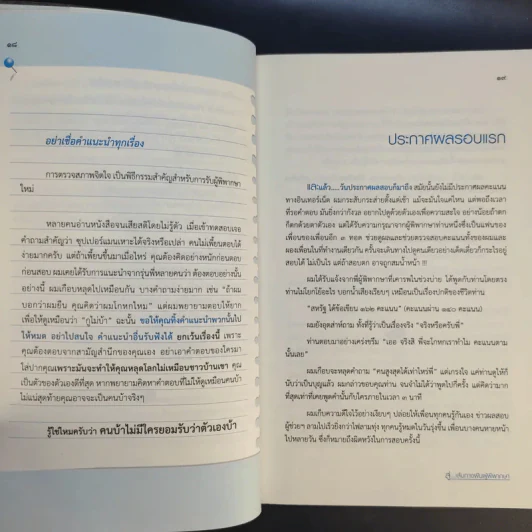 ๑๘
อย่าเชื่อคำแนะนำทุกเรื่อง
การตรวจสภาพจิตใจ เป็นพิธีกรรมสำคัญสำหรับการรับผู้พิพากษา
ใหม่
หลายคนอ่านหนังสือจนเสียสติโดยไม่รู้ตัว เมื่อเข้าทดสอบเจอ
คำถามสำคัญว่า ซุปเปอร์แมนเหาะได้จริงหรือเปล่า คนไม่เพี้ยนตอบได้
ง่ายมากครับ แต่ถ้าเพี้ยนขึ้นมาเมื่อไหร่ คุณต้องคิดอย่างหนักก่อนตอบ
ก่อนสอบ ผมเคยได้รับการแนะนำจากรุ่นพี่หลายคนว่า ต้องตอบอย่างนั้น
อย่างนี้ ผมเกือบหลุดไปเหมือนกัน บางคำถามง่ายมาก เช่น "ถ้าผม
บอกว่าผมยืน คุณคิดว่าผมโกหกไหม" แต่ผมพยายามตอบให้ยาก
เพื่อให้ดูเหมือนว่า "กูไม่บ้า" ฉะนั้น ขอให้คุณทิ้งคำแนะนำพวกนั้นไป
ให้หมด อย่าไปสนใจ คำแนะนำอื่นรับฟังได้ ยกเว้นเรื่องนี้ เพราะ
คุณต้องตอบจากสามัญสำนึกของคุณเอง อย่าเอาคำตอบของใครมา
ใส่ปากคุณเพราะมันจะทำให้คุณหลุดโลกไม่เหมือนชาวบ้านเขา คุณ
เป็นตัวของตัวเองดีที่สุด หากพยายามคิดหาคำตอบที่ไม่ให้ดูเหมือนคนบ้า
ไม่แน่สุดท้ายคุณอาจจะเป็นคนบ้าจริงๆ
รู้ใช่ไหมครับว่า คนบ้าไม่มีใครยอมรับว่าตัวเองบ้า
๑๙
ประกาศผลรอบแรก
และแล้ว.....วันประกาศผลสอบก็มาถึง สมัยนั้นยังไม่มีประกาศผลคะแนน
ทางอินเทอร์เน็ต ผมกระสับกระส่ายตั้งแต่เช้า แม้จะมั่นใจแค่ไหน แต่พอถึงเวลา
ที่รอคำตอบ มันยิ่งกว่ากังวล อยากไปดูด้วยตัวเองเพื่อความสะใจ อย่างน้อยถ้าตก
ก็ตกด้วยตาตัวเอง แต่ได้รับความกรุณาจากผู้พิพากษาท่านหนึ่งซึ่งเป็นแฟนของ
เพื่อนของเพื่อนอีก ๓ ทอด ช่วยดูผลและช่วยตรวจสอบคะแนนทั้งของผมและ
ผองเพื่อนในที่ทำงานเดียวกัน ครั้นจะเดินทางไปดูคนเดียวอย่างเด็ดเดี่ยวก็กระไรอยู่
สอบได้ ไม่เป็นไร แต่ถ้าสอบตก อาจถูกสมน้ำหน้า !!!
ผมได้รับแจ้งจากพี่ผู้พิพากษาที่เคารพในช่วงบ่าย ได้พูดกับท่านโดยตรง
ท่านไม่โยกโย้อะไร บอกน้ำเสียงเรียบๆ เหมือนเป็นเรื่องปกติของชีวิตท่าน
"สหรัฐ ได้ข้อเขียน ๑๖๒ คะแนน" (คะแนนผ่าน ๑๒๐ คะแนน)
ผมยังอุตส่าห์ถาม ทั้งที่รู้ว่าเป็นเรื่องจริง "จริงหรือครับพี่"
ท่านตอบมาอย่างเคร่งขรึม "เออ จริงสิ พี่จะโกหกเราทำไม คะแนนตาม
นั้นเลย"
ผมเกือบจะหลุดคำถาม "คนสูงสุดได้เท่าไหร่พี่" แต่เกรงใจ แค่ท่านดูให้ก็
นับว่าเป็นบุญแล้ว ผมกล่าวขอบคุณท่าน จนจำไม่ได้ว่าพูดไปกี่ครั้ง แต่คิดว่ามาก
ที่สุดเท่าที่เคยพูดคำนั้นกับใครภายในเวลา ๓ นาที
ผมเก็บความดีใจไว้อย่างเงียบๆ ปล่อยให้เพื่อนทุกคนรู้กันเอง ข่าวผลสอบ
ผู้ช่วยฯ ลามไปเร็วยิ่งกว่าไฟลามทุ่ง ทุกคนรู้หมดในวันรุ่งขึ้น เพื่อนบางคนหายหน้า
ไปหลายวัน ซึ่งก็หมายถึงผิดหวังในการสอบครั้งนี้